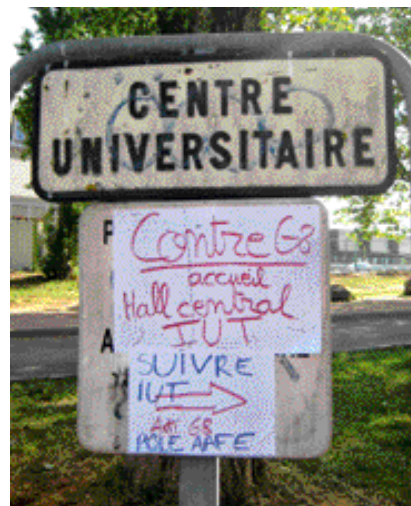 CENTRE
UNIVERSITAIRE
Contre G8
accueil
Hall central
IUT
SUIVRE
IUT
Anti G8
POLE AAFE